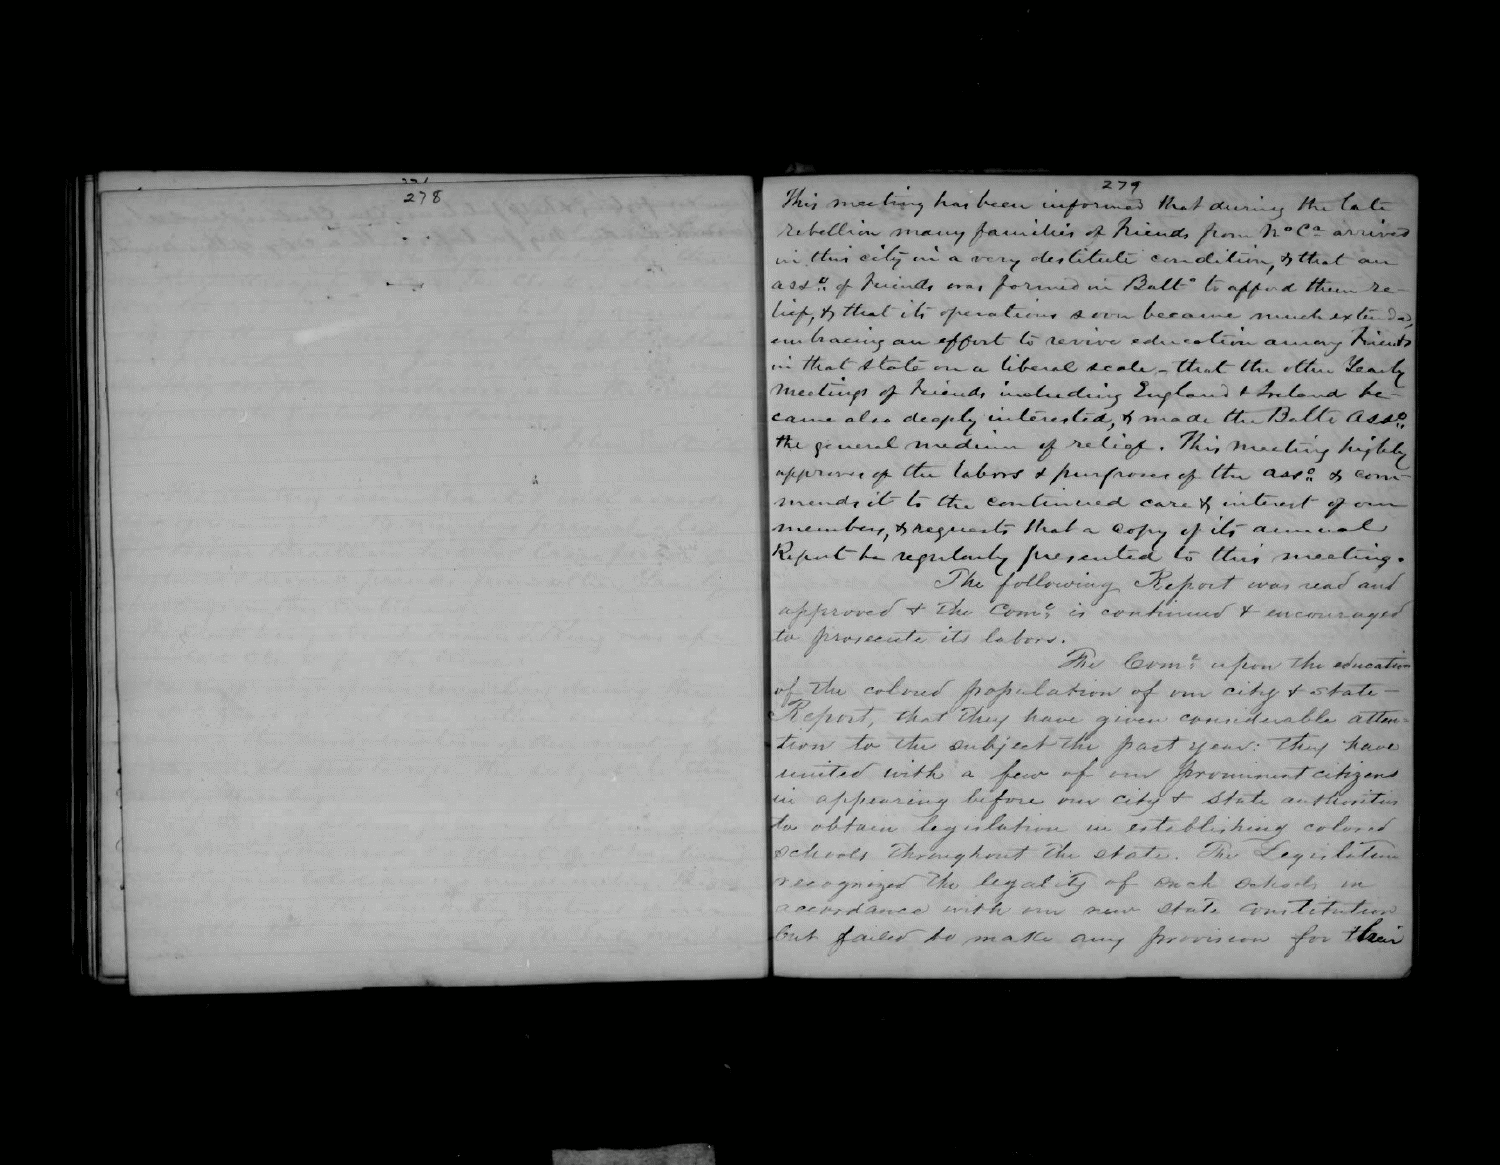 278
279
This meeting has been informed that during the late
rebellion many families of Friends from No Ca arrived
in this city in a very destitute condition, & that an
asso. of Friends was formed in Balto to afford them re-
lief, & that its operations soon became much extended,
embracing an effort to revive education among Friends
in that State on a liberal scale - that the other Yearly
Meetings of Friends including England & Ireland be-
came also deeply interested, & made the Balto Asso.
the general medium of relief. This meeting highly
approves of the labors & purposes of the asso. & com-
mends it to the continued care & interest of our
members, & requests that a copy of its annual
Report be regularly presented to this meeting.
The following Report was read and
approved & the Come. is continued & encouraged
to prosecute its labors.
The Come. upon the education
of the colored population of our city & state -
Report, that they have given considerable atten-
tion to the subject the past year: they have
united with a few of our prominent citizens
in appearing before our city & State authorities
to obtain legislation in establishing colored
schools throughout the state. The Legislature
recognized the legality of such schools in
accordance with our new state constitution
but failed to make any provision for their